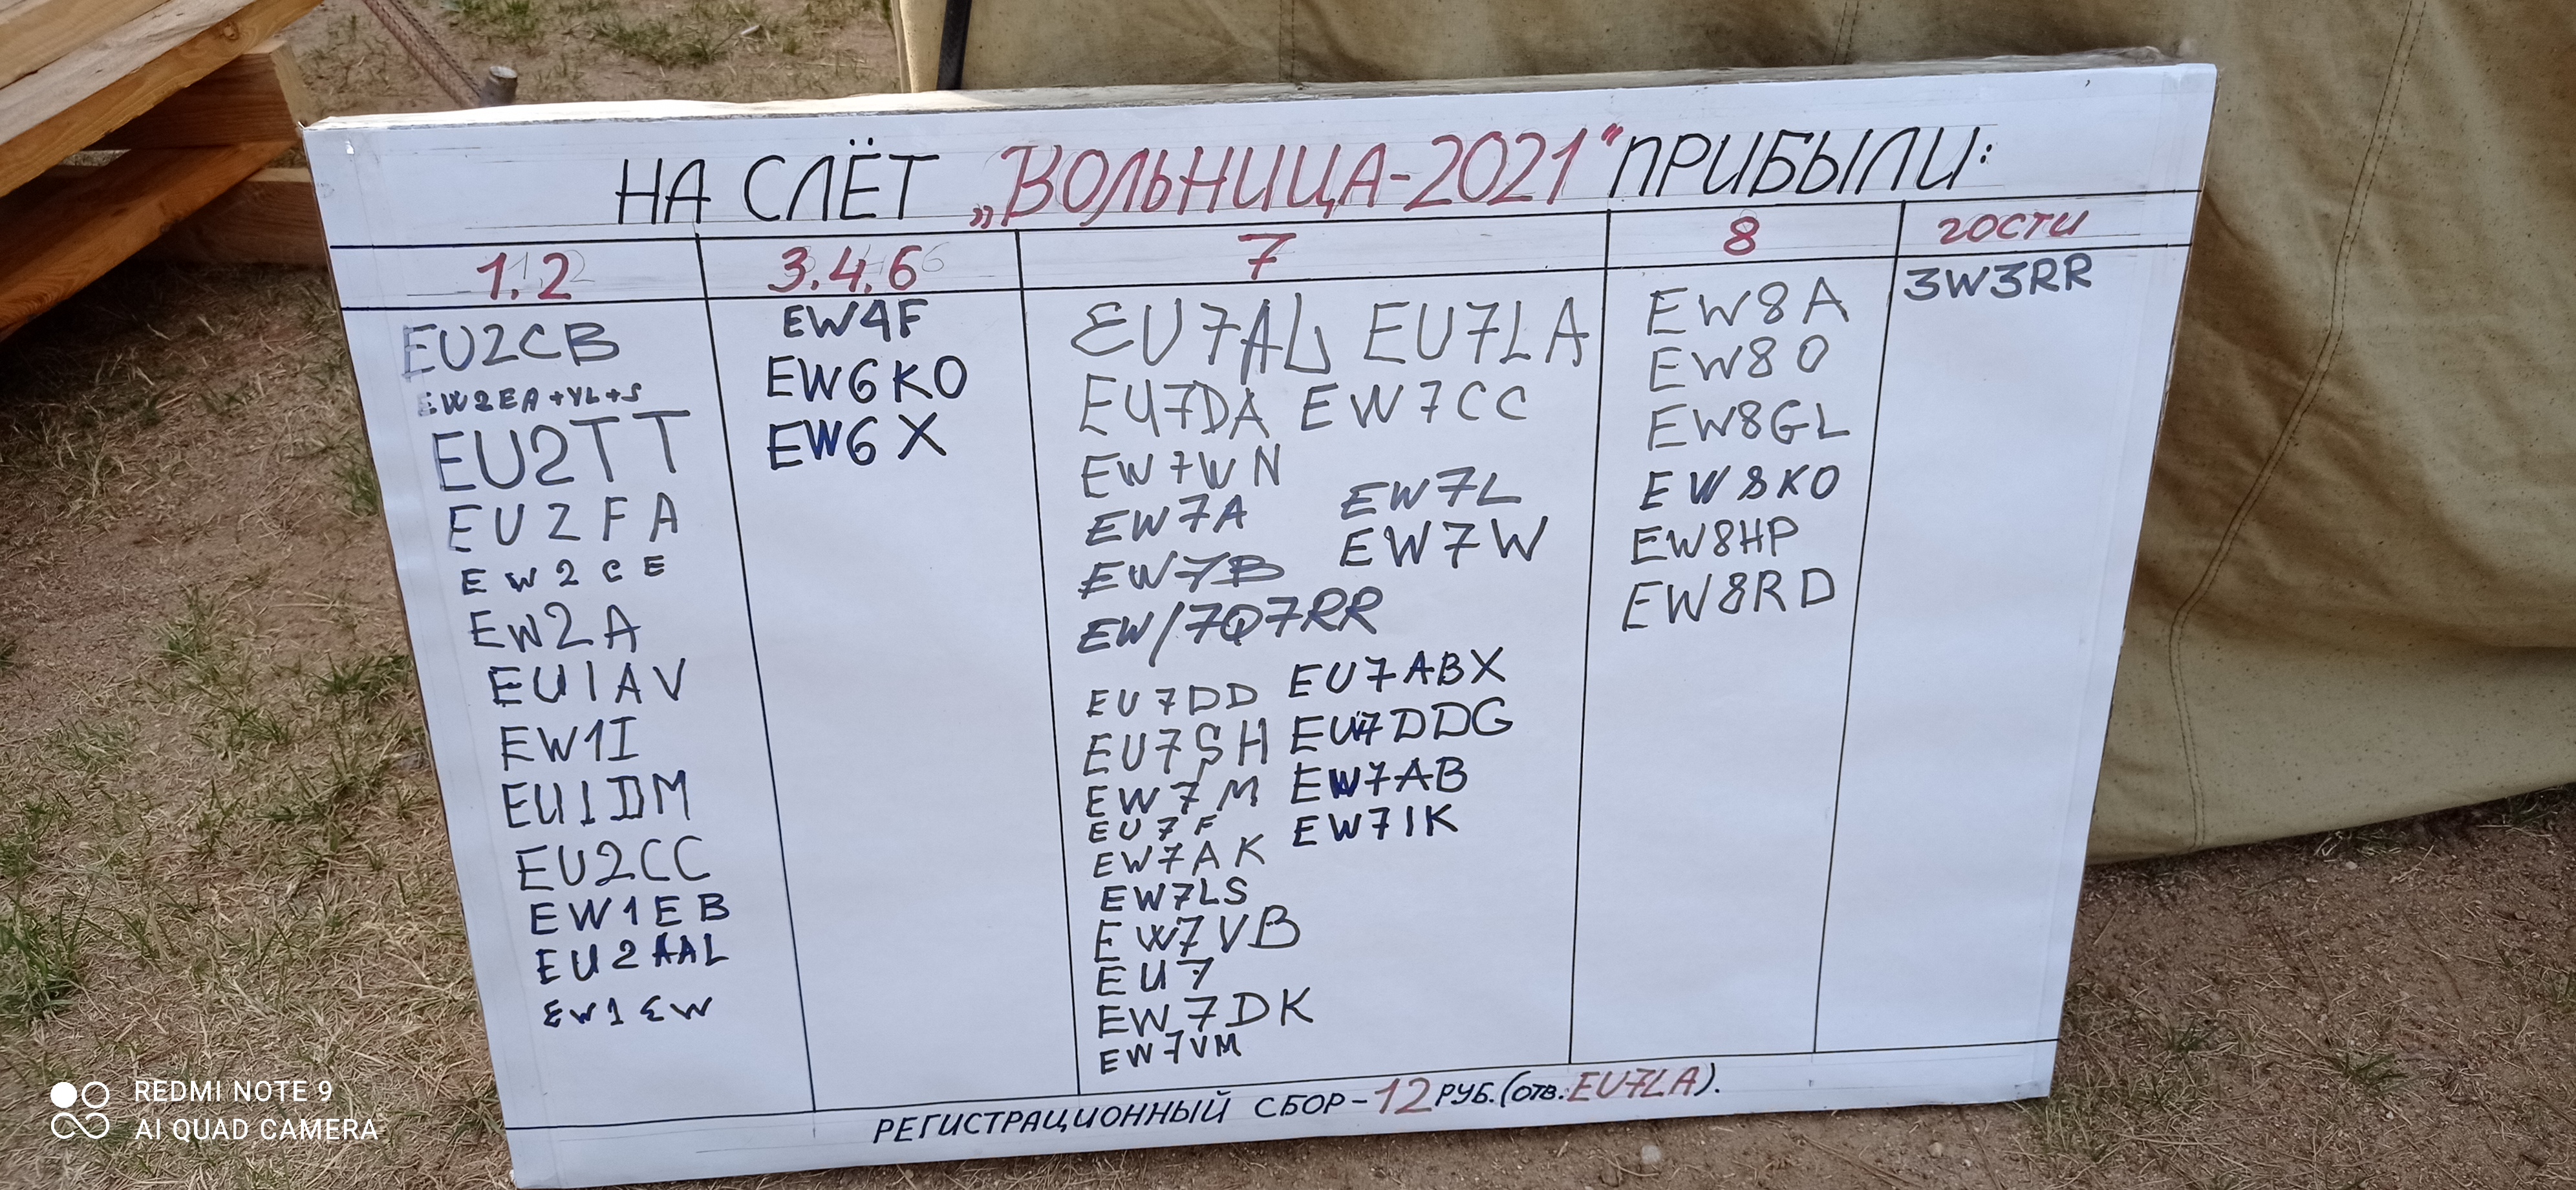 НА СЛЁТ „ВОЛЬНИЦА-2021" ПРИБЫЛИ:
1.2
EU2CB
EW2EA+YL+S
EU2TT
EU2FA
EW2CE
EW2A
EU1AV
EW1I
EU1DM
EU2CC
EW1EB
EU2AAL
EW1EW
3.4.6
EW4F
EW6KO
EW6X
7
EU7AL EU7LA
EU7DA EW7CC
EW7WN
EW7A EW7L
EW7B EW7W
EW/7Q7RR
EU7DD EU7ABX
EU7SH EU7DDG
EW7M EW7AB
EU7F EW7IK
EW7AK
EW7LS
EW7VB
EU7
EW7DK
EW7VM
8
EW8A
EW8O
EW8GL
EW8KO
EW8HP
EW8RD
ГОСТИ
3W3RR
РЕГИСТРАЦИОННЫЙ СБОР-12 РУБ.(ОТВ.:EU7LA).
REDMI NOTE 9
AI QUAD CAMERA